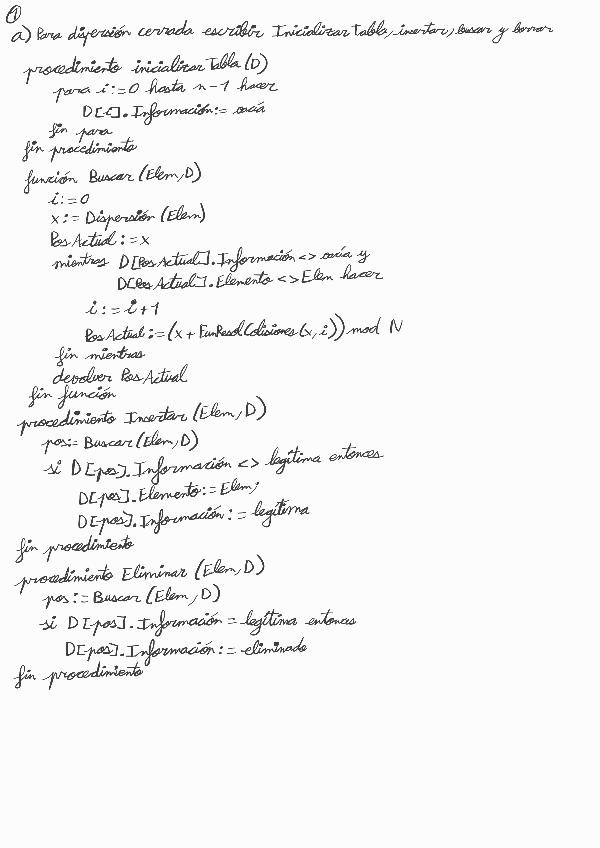 ①
a) Para dispersión cerrada escribir InicializarTabla, insertar, buscar y borrar
procedimiento inicializarTabla (D)
para i:=0 hasta n-1 hacer
D[i].Información:= vacía
fin para
fin procedimiento
función Buscar (Elem,D)
i:=0
x:= Dispersión (Elem)
PosActual:=x
mientras D[PosActual].Información <> vacía y
D[PosActual].Elemento <> Elem hacer
i:= i+1
PosActual:=(x + FunResolColisiones(x,i)) mod N
fin mientras
devolver PosActual
fin función
procedimiento Insertar (Elem,D)
pos:= Buscar(Elem,D)
si D[pos].Información <> legítima entonces
D[pos].Elemento:= Elem;
D[pos].Información:= legítima
fin procedimiento
procedimiento Eliminar (Elem,D)
pos:= Buscar (Elem,D)
si D[pos].Información = legítima entonces
D[pos].Información:= eliminado
fin procedimiento